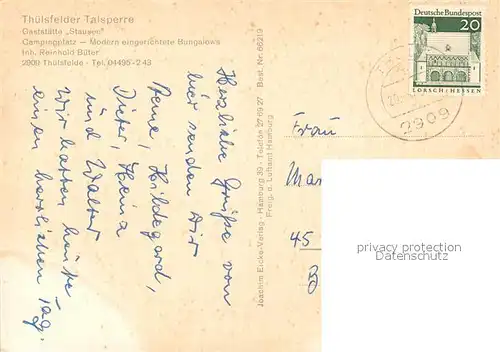 Thülsfelder Talsperre
Gaststätte „Stausee"
Campingplatz — Modern eingerichtete Bungalows
Inh. Reinhold Büter
2908 Thülsfelde - Tel. 04495-243
Herzliche Grüße vom
hier senden Dir
Rene, Hildegard,
Dieter, Heina
und Walter
Wir hatten heute
einen herrlichen Tag.
Joachim Eicke-Verlag - Hamburg 39 - Telefon 27 69 27 Best. Nr. 66219
Freig. d. Luftamt Hamburg
Deutsche Bundespost
20
LORSCH/HESSEN
2909
Frau
Mar
45
privacy protection
Datenschutz